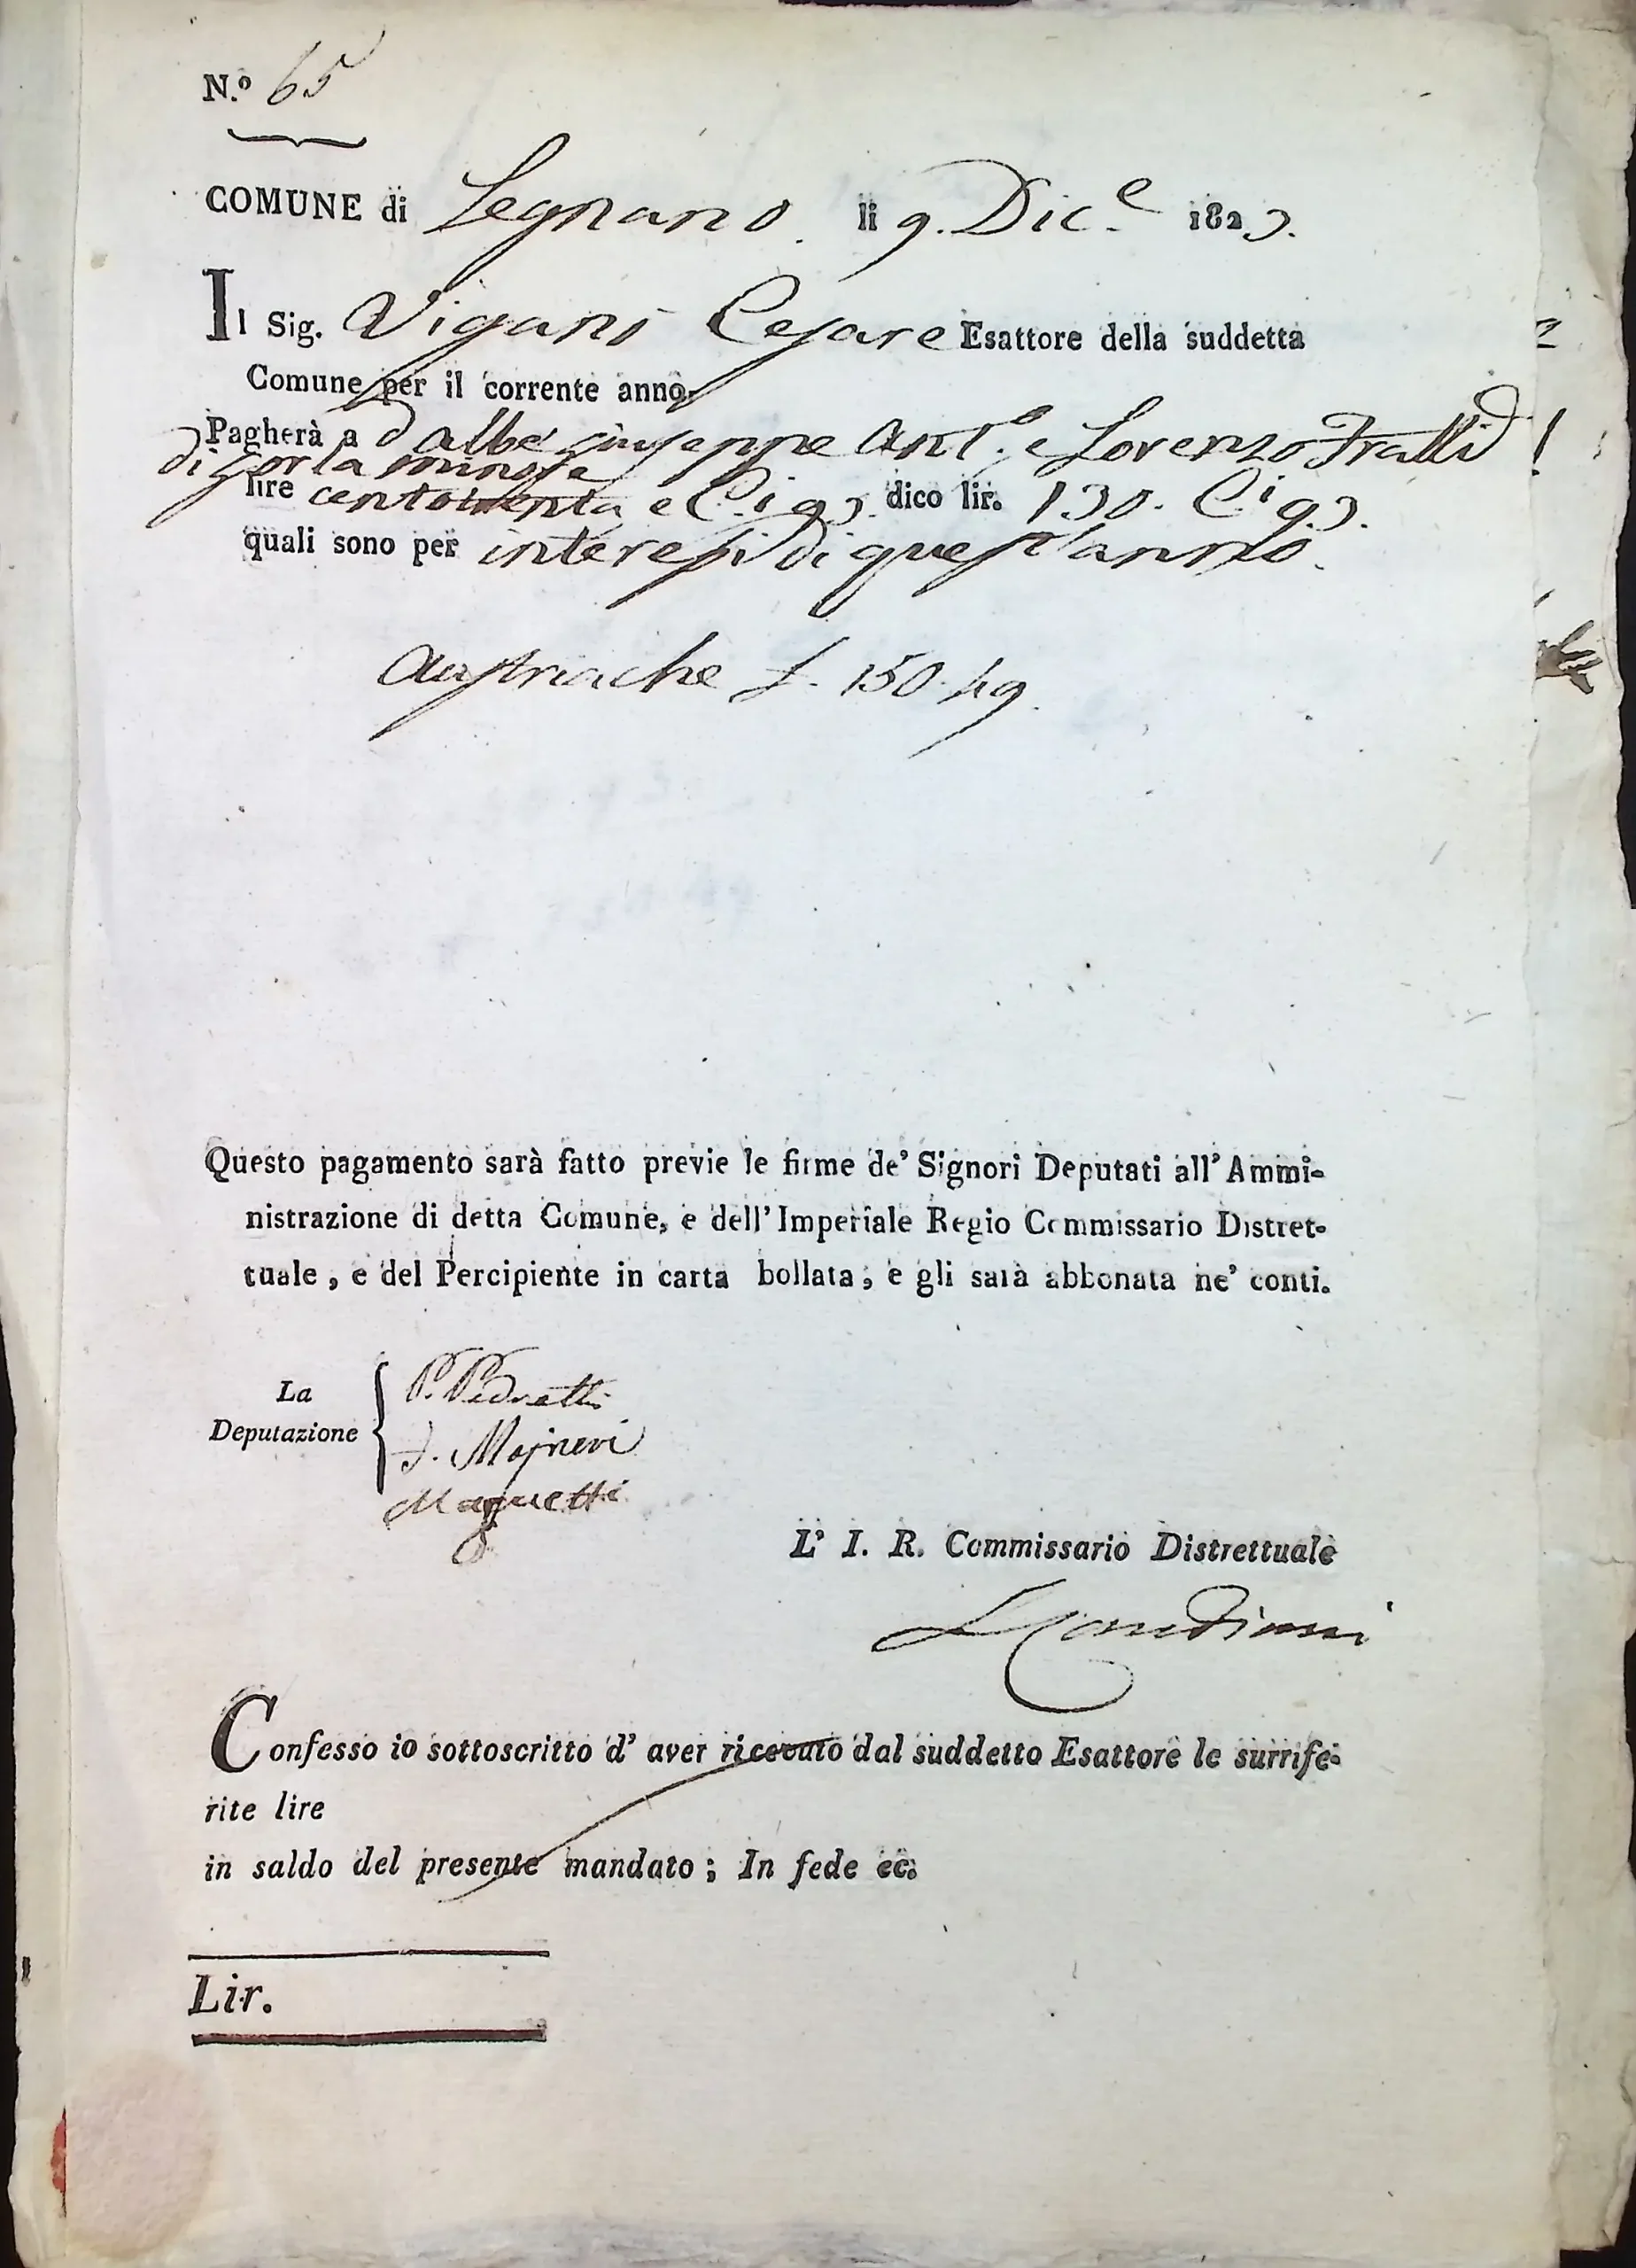 N.º 65
COMUNE di Legnano li 9. Dic.e 1823.
Il Sig. Viganò Cesare Esattore della suddetta
Comune per il corrente anno.
Pagherà a d'albe' giuseppe Ant.º e Lorenzo Fratelli
di gorla minore
lire centotrenta e C.i 93 dico lir. 130. C.i 93.
quali sono per interessi di quest'anno.
Austriache L. 150.49.
Questo pagamento sarà fatto previe le firme de' Signori Deputati all' Ammi-
nistrazione di detta Comune, e dell' Imperiale Regio Commissario Distret-
tuale, e del Percipiente in carta bollata; e gli sarà abbonata ne' conti.
La
Deputazione
P. Pedratti
J. Majneri
L' I. R. Commissario Distrettuale
Confesso io sottoscritto d' aver ricevuto dal suddetto Esattore le surrife-
rite lire
in saldo del presente mandato; In fede ec.
Lir.